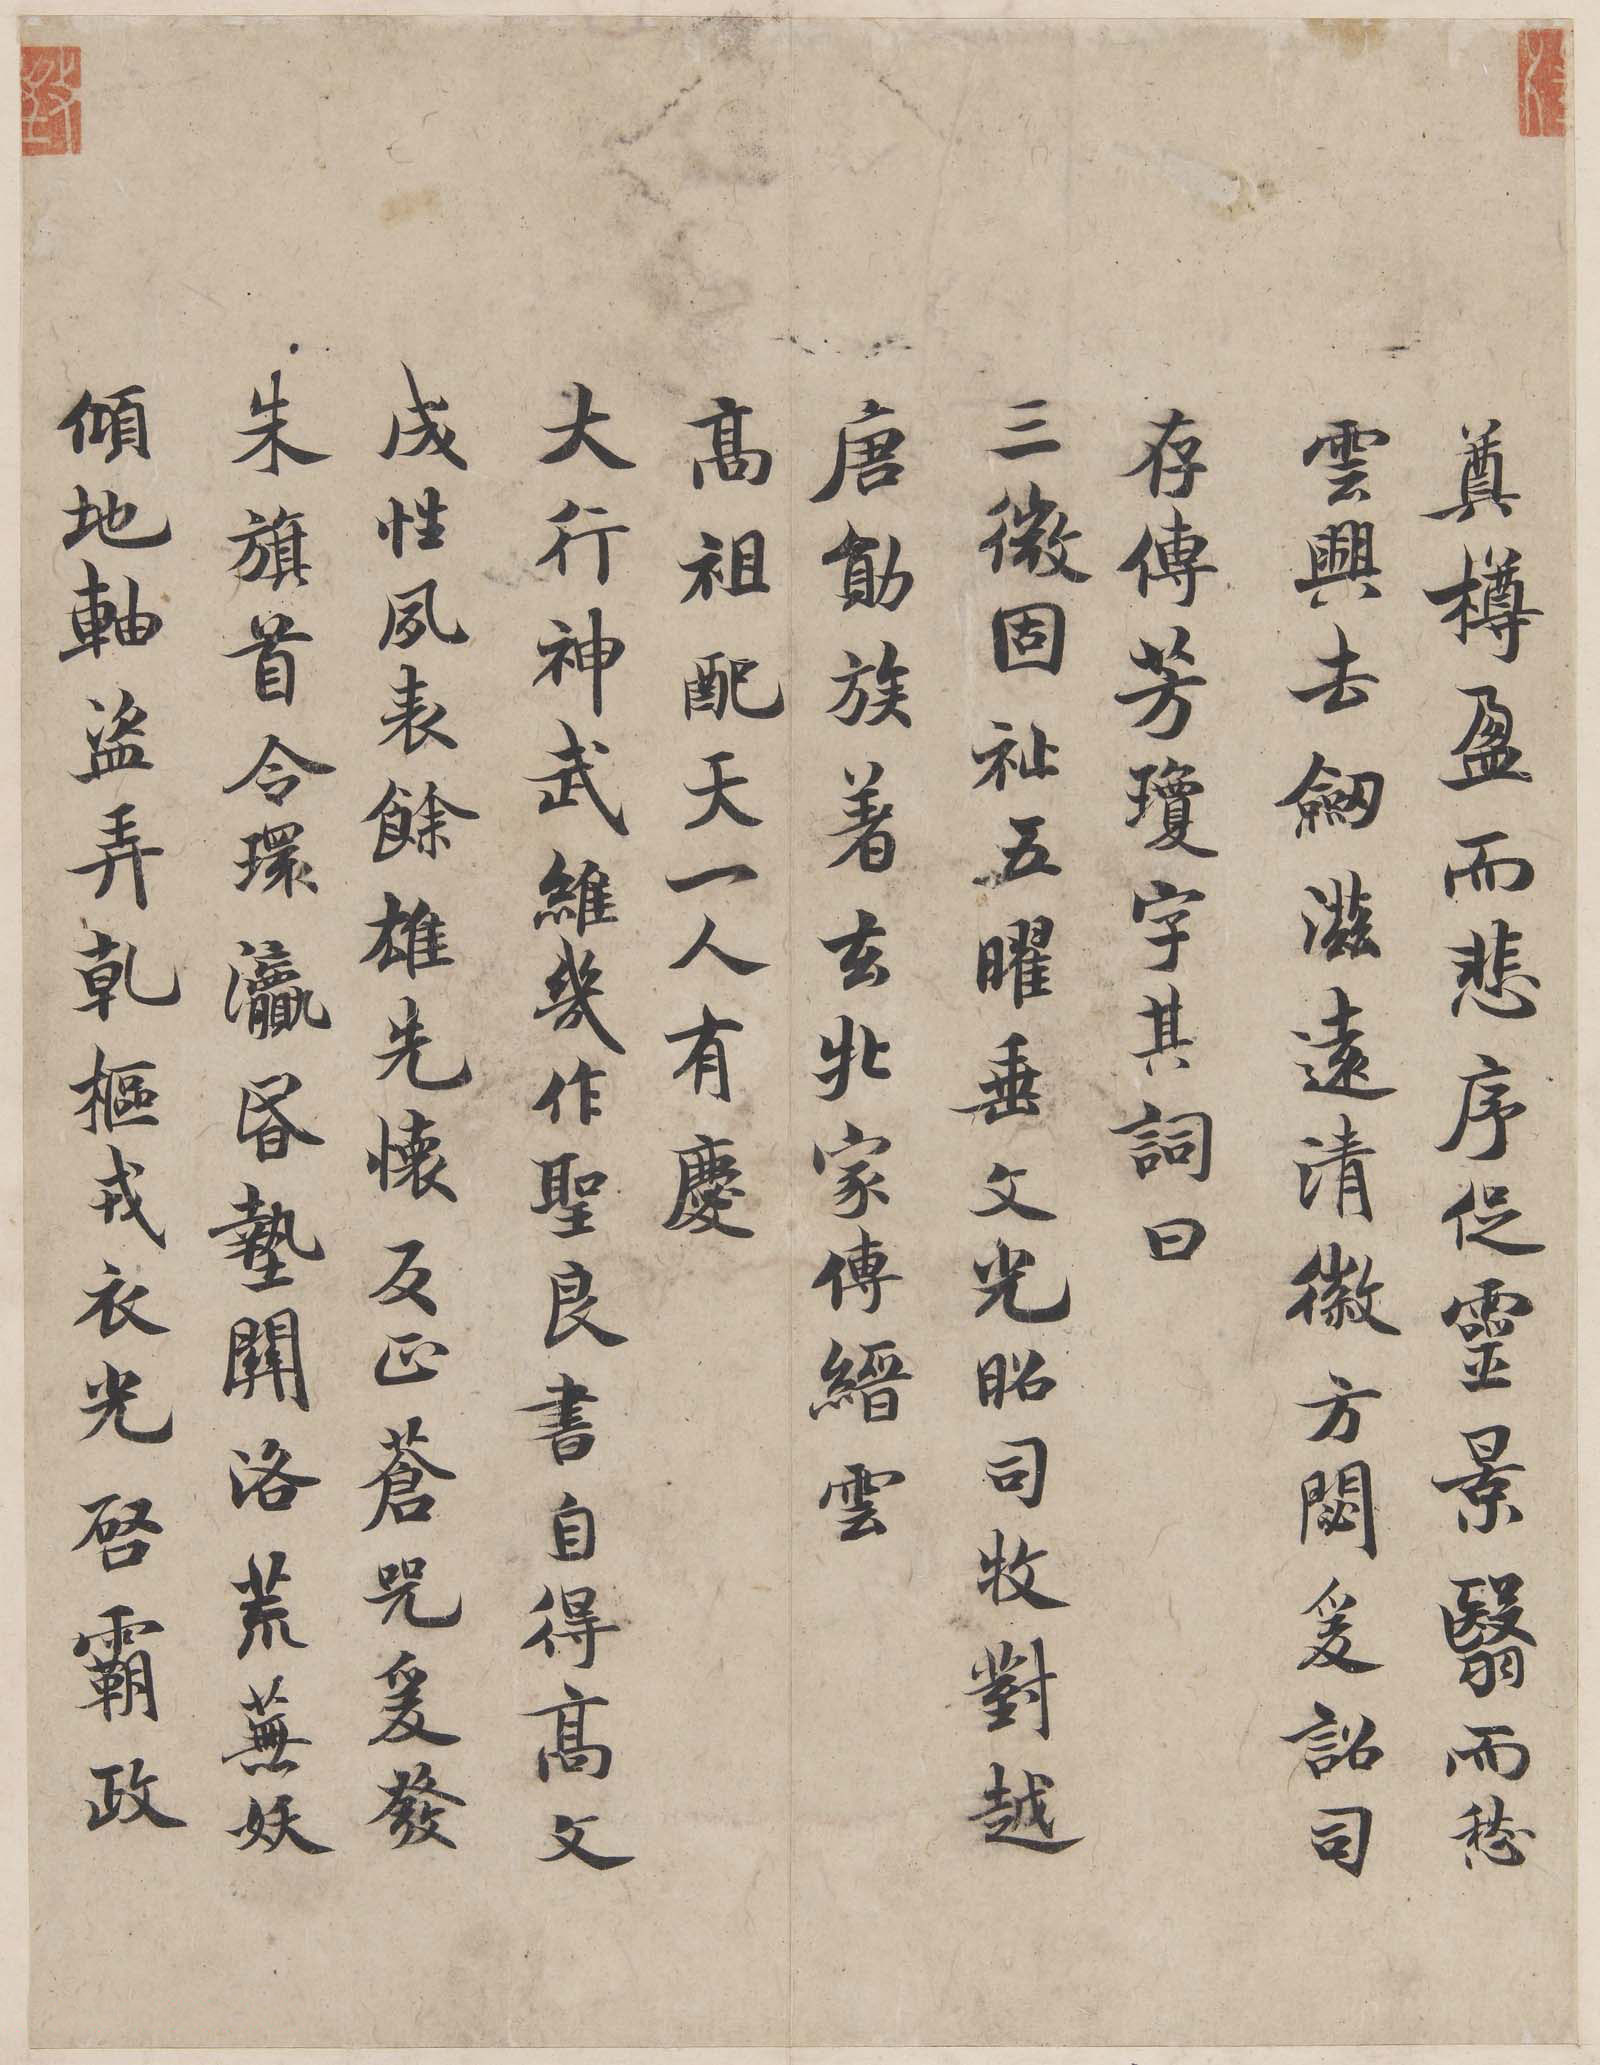 奠樽盈而悲序促靈景翳而愁
雲興去劒滋遠清徽方閟爰詔司
存傳芳瓊字其詞曰
三微固祉五曜垂文光昭司牧對越
唐勛族著玄牝家傳縉雲
髙祖配天一人有慶
大行神武維幾作聖良書自得髙文
成性夙表餘雄先懷反正蒼兕爰發
朱旗首令環瀛昏墊關洛荒蕪妖
傾地軸盜弄乾樞戎衣光啓霸政